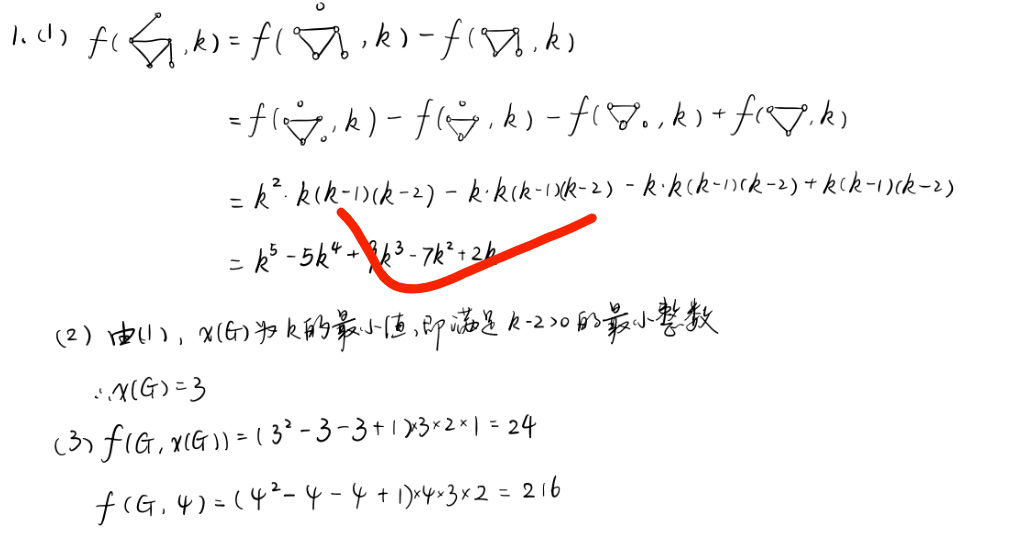 1. (1) f( , k) = f( , k) - f( , k)
= f( , k) - f( , k) - f( , k) + f( , k)
= k²·k(k-1)(k-2) - k·k(k-1)(k-2) - k·k(k-1)(k-2) + k(k-1)(k-2)
= k⁵ - 5k⁴ + 9k³ - 7k² + 2k
(2) 由(1), χ(G)为k的最小值,即满足k-2>0的最小整数
∴χ(G)=3
(3) f(G, χ(G)) = (3² - 3 - 3 + 1)×3×2×1 = 24
f(G, 4) = (4² - 4 - 4 + 1)×4×3×2 = 216